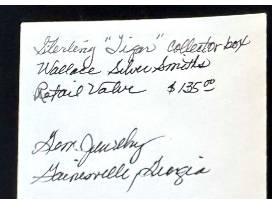 Sterling "Tiger" collector box
Wallace Silver Smiths
Retail Value $135.00
Gem Jewelry
Gainesville, Georgia